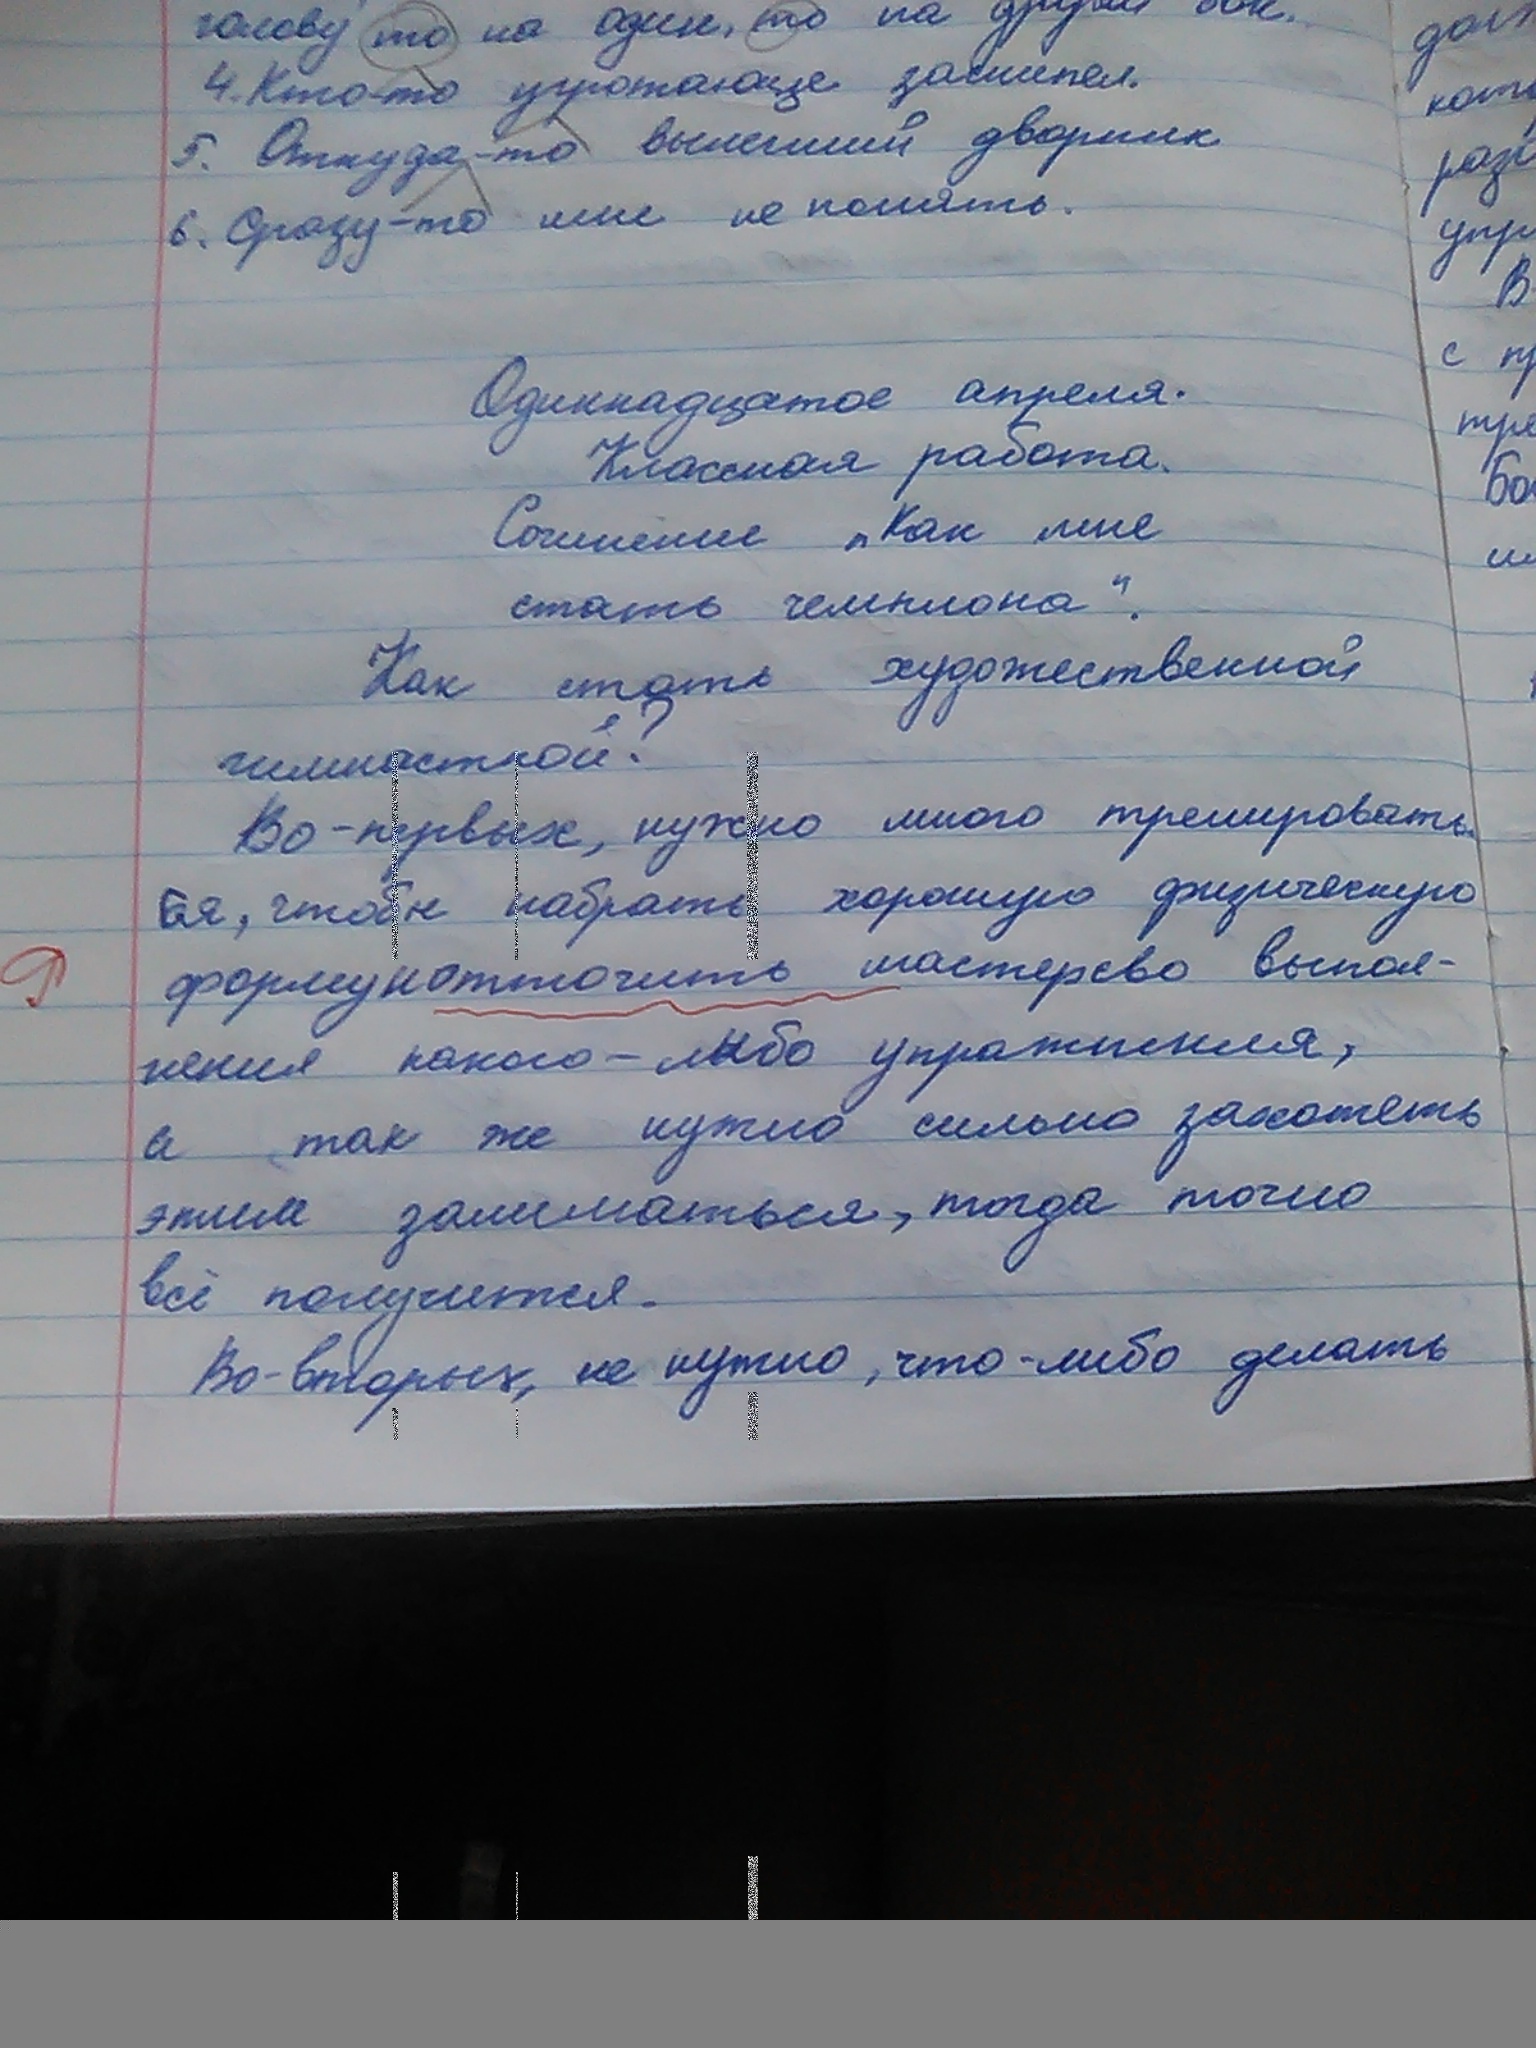 голову то на один, то на другой бок.
4. Кто-то угрожающе зашипел.
5. Откуда-то вылезший дворник
6. Сразу-то мне не понять.
Одиннадцатое апреля.
Классная работа.
Сочинение „Как мне
стать чемпиона".
Как стать художественной
гимнасткой?
Во-первых, нужно много тренировать-
ся, чтобы набрать хорошую физическую
форму и отточить мастерсво выпол-
нения какого-либо упражнения,
а так же нужно сильно захотеть
этим заниматься, тогда точно
всё получится.
Во-вторых, не нужно, что-либо делать
В
с